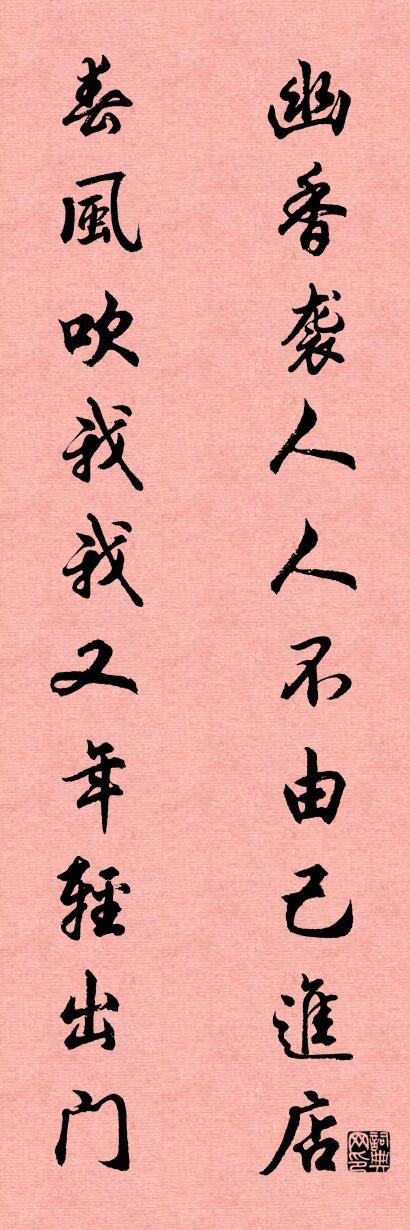 幽香袭人人不由己進店
春風吹我我又年輕出门
詞典
网印